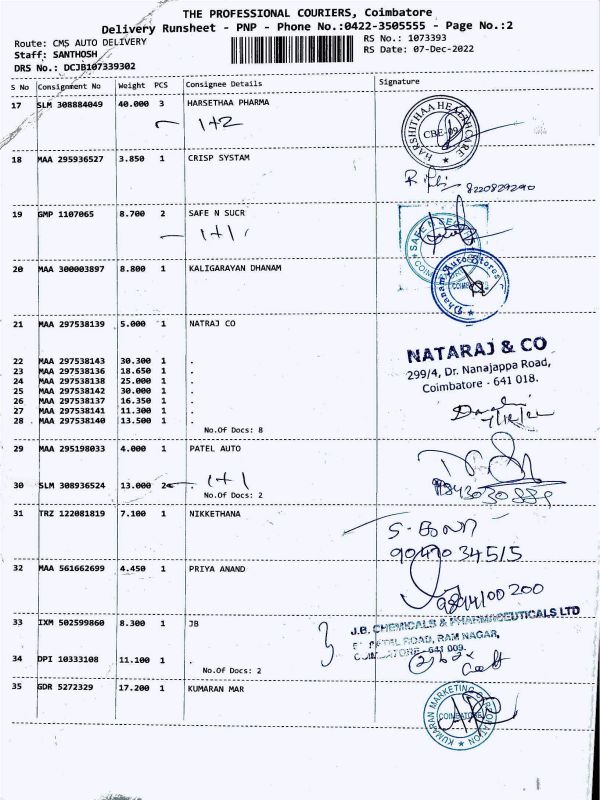 THE PROFESSIONAL COURIERS, Coimbatore
Delivery Runsheet - PNP - Phone No.:0422-3505555 - Page No.:2
Route: CMS AUTO DELIVERY
RS No.: 1073393
Staff: SANTHOSH
RS Date: 07-Dec-2022
DRS No.: DCJB107339302
S No Consignment No Weight PCS Consignee Details Signature
17 SLM 308884049 40.000 3 HARSETHAA PHARMA
1+2
HARSHITHAA HEALTHCARE
CBE-09
18 MAA 295936527 3.850 1 CRISP SYSTAM
8220829290
19 GMP 1107065 8.700 2 SAFE N SUCR
1+1
20 MAA 300003897 8.800 1 KALIGARAYAN DHANAM
Dhanam Auto Stores
21 MAA 297538139 5.000 1 NATRAJ CO
NATARAJ & CO
299/4, Dr. Nanajappa Road,
Coimbatore - 641 018.
22 MAA 297538143 30.300 1 .
23 MAA 297538136 18.650 1 .
24 MAA 297538138 25.000 1 .
25 MAA 297538142 30.000 1 .
26 MAA 297538137 16.350 1 .
27 MAA 297538141 11.300 1 .
28 MAA 297538140 13.500 1 .
7/12/22
No.Of Docs: 8
29 MAA 295198033 4.000 1 PATEL AUTO
30 SLM 308936524 13.000 2 .
1+1
No.Of Docs: 2
31 TRZ 122081819 7.100 1 NIKKETHANA
9047034515
32 MAA 561662699 4.450 1 PRIYA ANAND
9894100200
33 IXM 502599860 8.300 1 JB
J.B. CHEMICALS & PHARMACEUTICALS LTD
PATEL ROAD, RAM NAGAR,
641 009.
34 DPI 10333108 11.100 1 .
No.Of Docs: 2
35 GDR 5272329 17.200 1 KUMARAN MAR
KUMARAN MARKETING CORPORATION
COIMBATORE